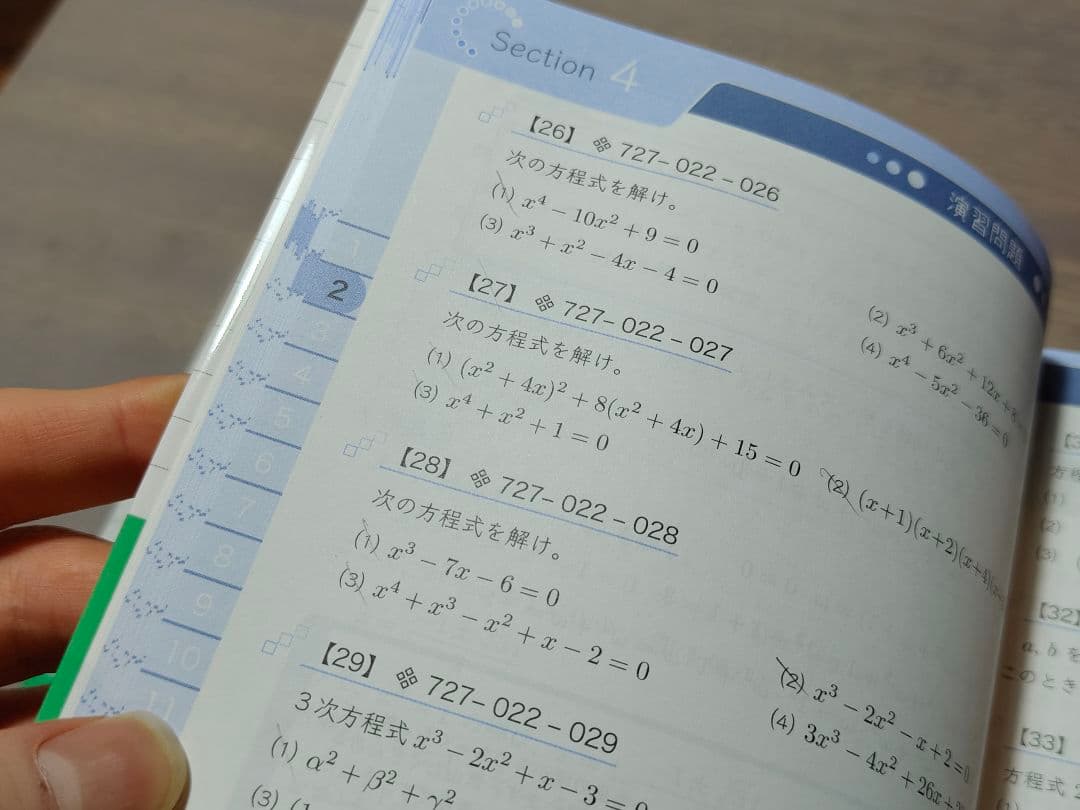 Section 4
演習問題
【26】 727-022-026
次の方程式を解け。
(1) x⁴ − 10x² + 9 = 0
(2) x³ + 6x² + 12x + 8
(3) x³ + x² − 4x − 4 = 0
(4) x⁴ − 5x² − 36 = 0
【27】 727-022-027
次の方程式を解け。
(1) (x² + 4x)² + 8(x² + 4x) + 15 = 0
(2) (x+1)(x+2)(x+4)(x
(3) x⁴ + x² + 1 = 0
【28】 727-022-028
次の方程式を解け。
(1) x³ − 7x − 6 = 0
(2) x³ − 2x² − x + 2 = 0
(3) x⁴ + x³ − x² + x − 2 = 0
(4) 3x³ − 4x² + 26x +
【29】 727-022-029
3次方程式 x³ − 2x² + x − 3 = 0
(1) α² + β² + γ²
(3) (1
1
2
3
4
5
6
7
8
9
10
11
【3
方程
(1)
(2)
(3)
【32】
a、b を
このとき
【33】
方程式 2